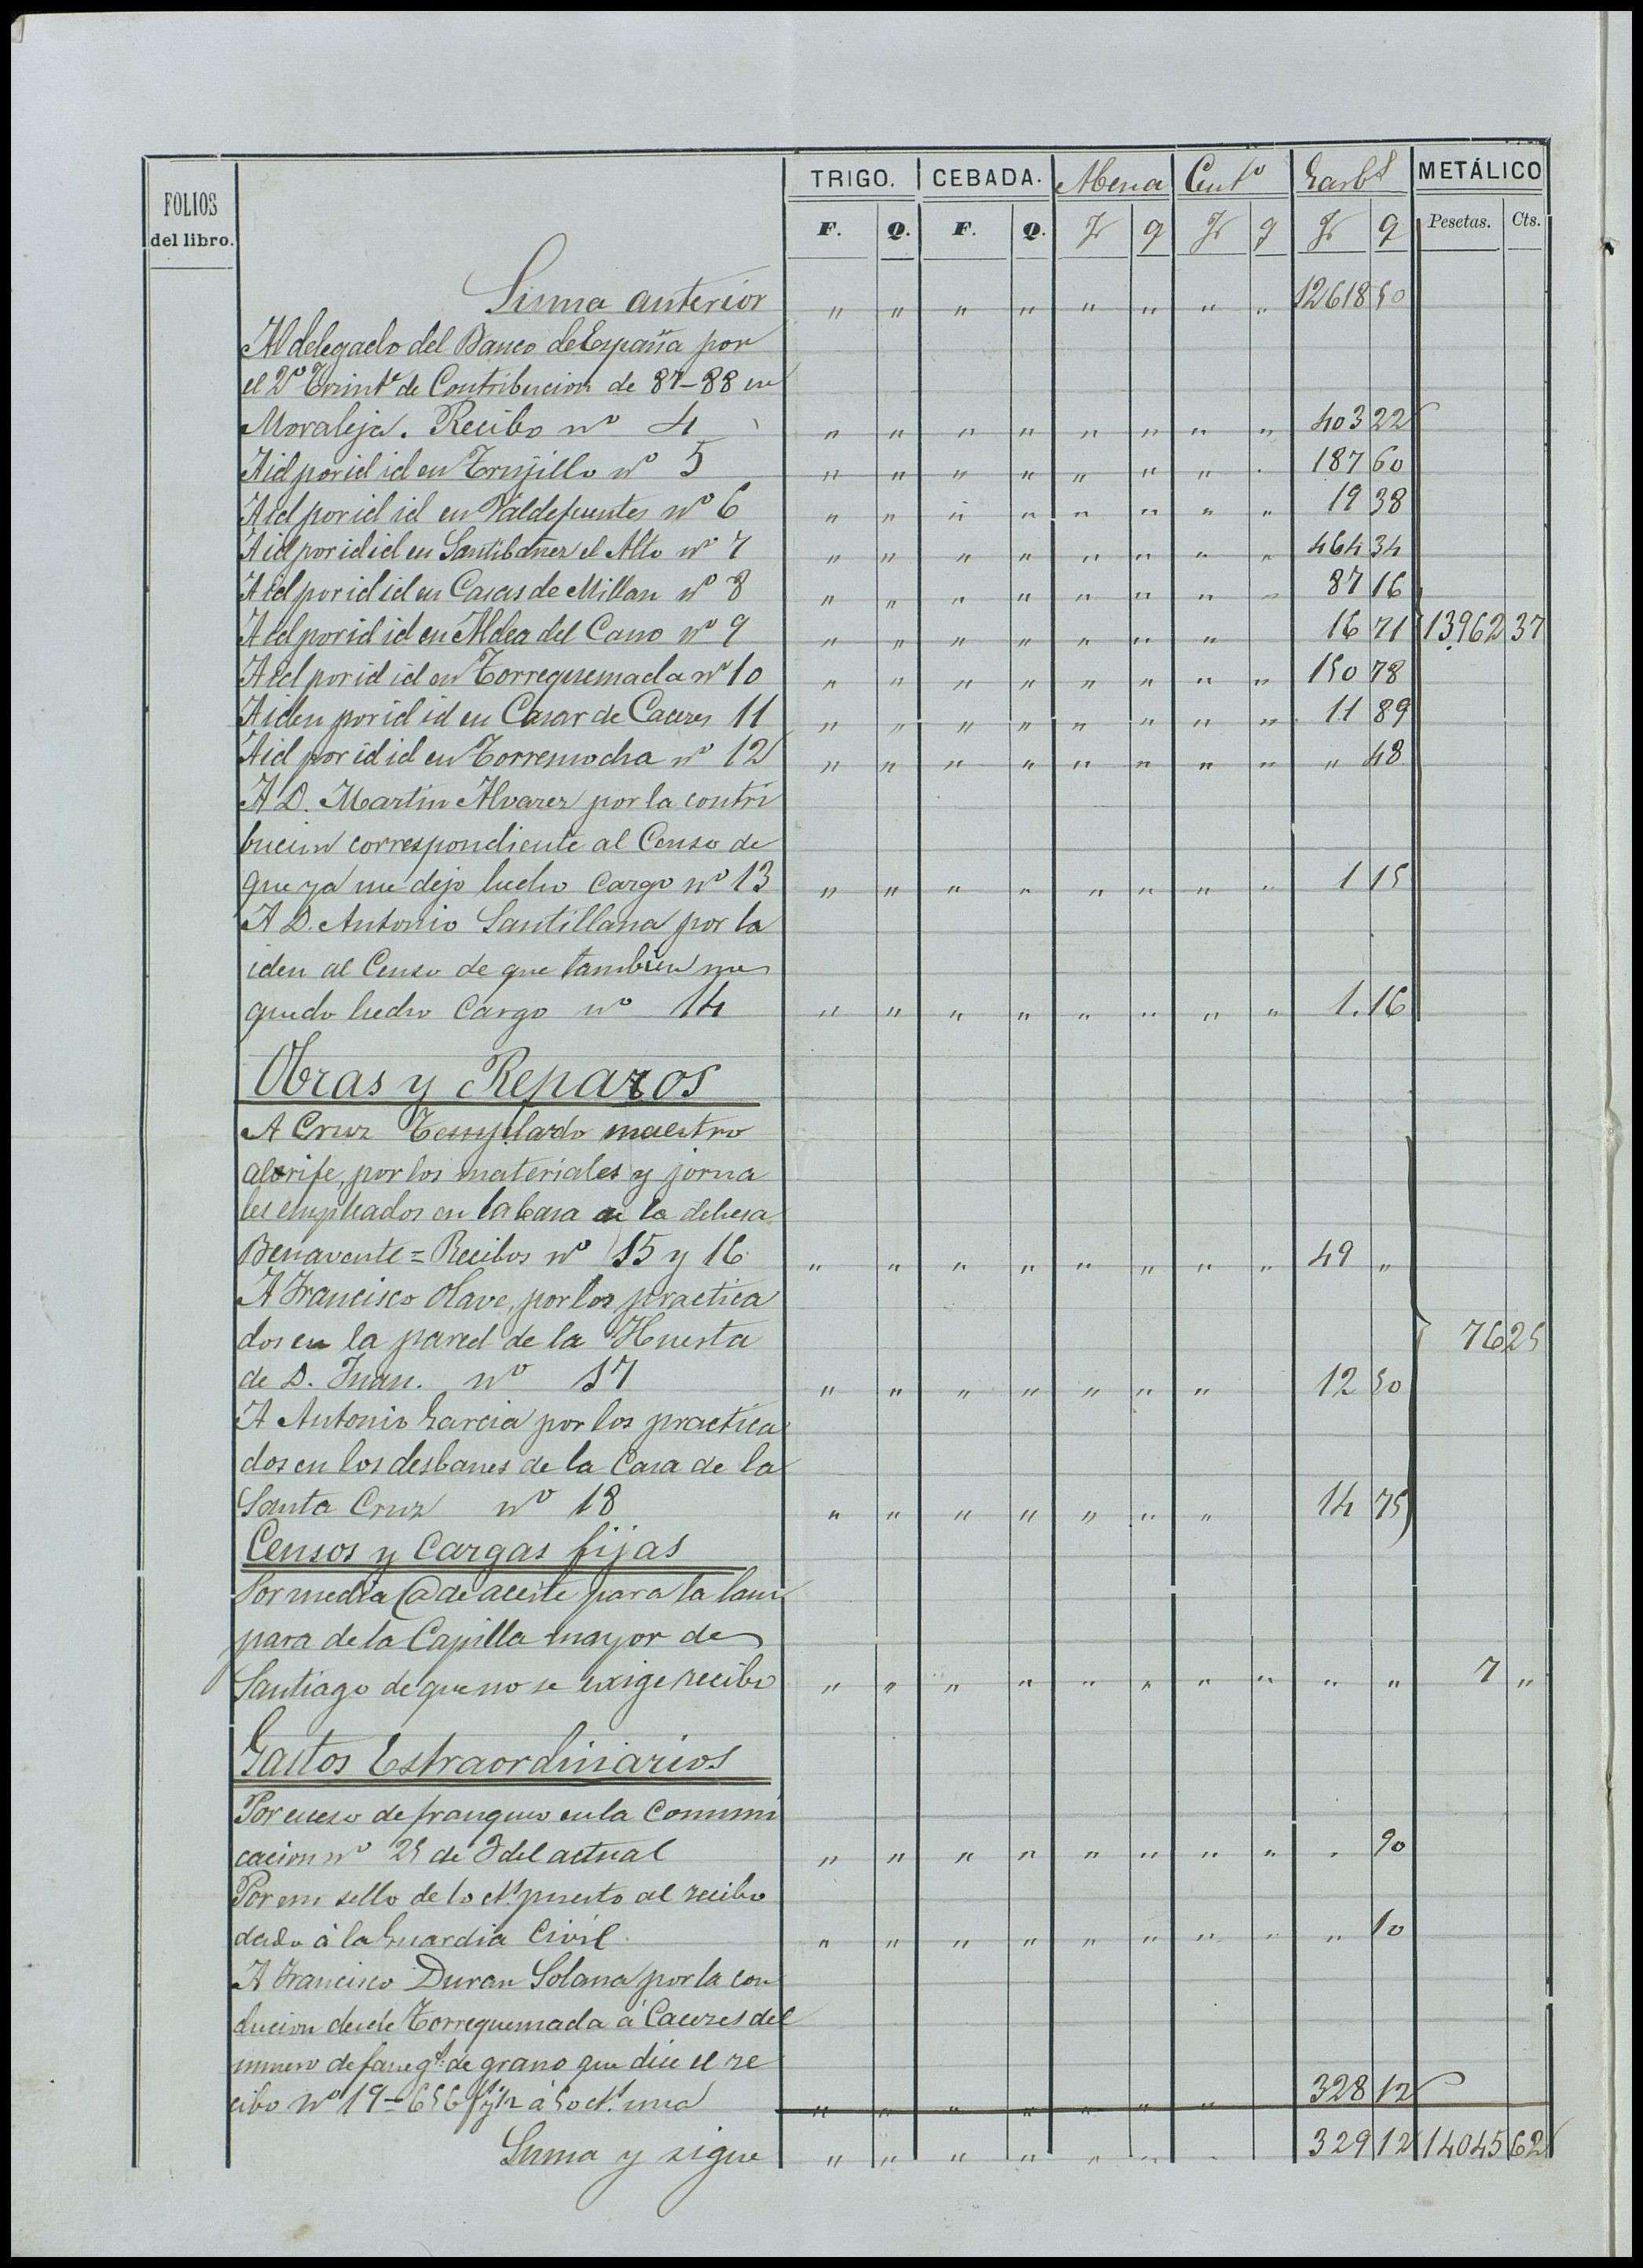 TRIGO. CEBADA. Abena Centº Garbs METÁLICO
FOLIOS
del libro.
F. Q. F. Q. F q F q F q Pesetas. Cts.
Suma anterior " " " " " " " " 12618 50
Al delegado del Banco de España por
el 2º Trimte de Contribucion de 87-88 en
Moraleja. Recibo nº 4 " " " " " " " " 403 22
A id por id id en Trujillo nº 5 " " " " " " " " 187 60
A id por id id en Valdefuentes nº 6 " " " " " " " " 19 38
A id por id id en Santibañez el Alto nº 7 " " " " " " " " 464 34
A id por id id en Casas de Millan nº 8 " " " " " " " " 87 16
A id por id id en Aldea del Cano nº 9 " " " " " " " 16 71 13,962 37
A id por id id en Torrequemada nº 10 " " " " " " " " 150 78
A iden por id id en Casar de Caceres 11 " " " " " " " " 11 89
A id por id id en Torremocha nº 12 " " " " " " " " " 48
A D. Martin Alvarez por la contri
bucion correspondiente al Censo de
que ya me dejo hecho cargo nº 13 " " " " " " " " 1 15
A D. Antonio Santillana por la
iden al Censo de que tambien me
quedo hecho cargo nº 14 " " " " " " " " 1.16
Obras y Reparos
A Cruz Templado maestro
alarife, por los materiales y jorna
les empleados en la Casa de la dehesa
Benavente = Recibos nº 15 y 16 " " " " " " " " 49 "
A Francisco Olave, por los practica
dos en la pared de la Huerta 76 25
de D. Juan. nº 17 " " " " " " " 12 50
A Antonio Garcia por los practica
dos en los desbanes de la Casa de la
Santa Cruz nº 18 " " " " " " " 14 75
Censos y Cargas fijas
Por media @ de aceite para la lam
para de la Capilla mayor de
Santiago de que no se exige recibo " " " " " " " " " " 7 "
Gastos Estraordinarios
Por exceso de franqueo en la Comuni
cacion nº 25 de 3 del actual " " " " " " " " " 90
Por un sello de 10 cts. puesto al recibo
dado á la Guardia Civil. " " " " " " " " " 10
A Francisco Duran Solana por la con
ducion desde Torrequemada á Caceres del
numero de faneg.s de grano que dice el re
cibo nº 19 = 656 fs y ¼ á 50 cts. una " " " " " " " 328 12
Suma y sigue " " " " " " " 329 12 14045 62